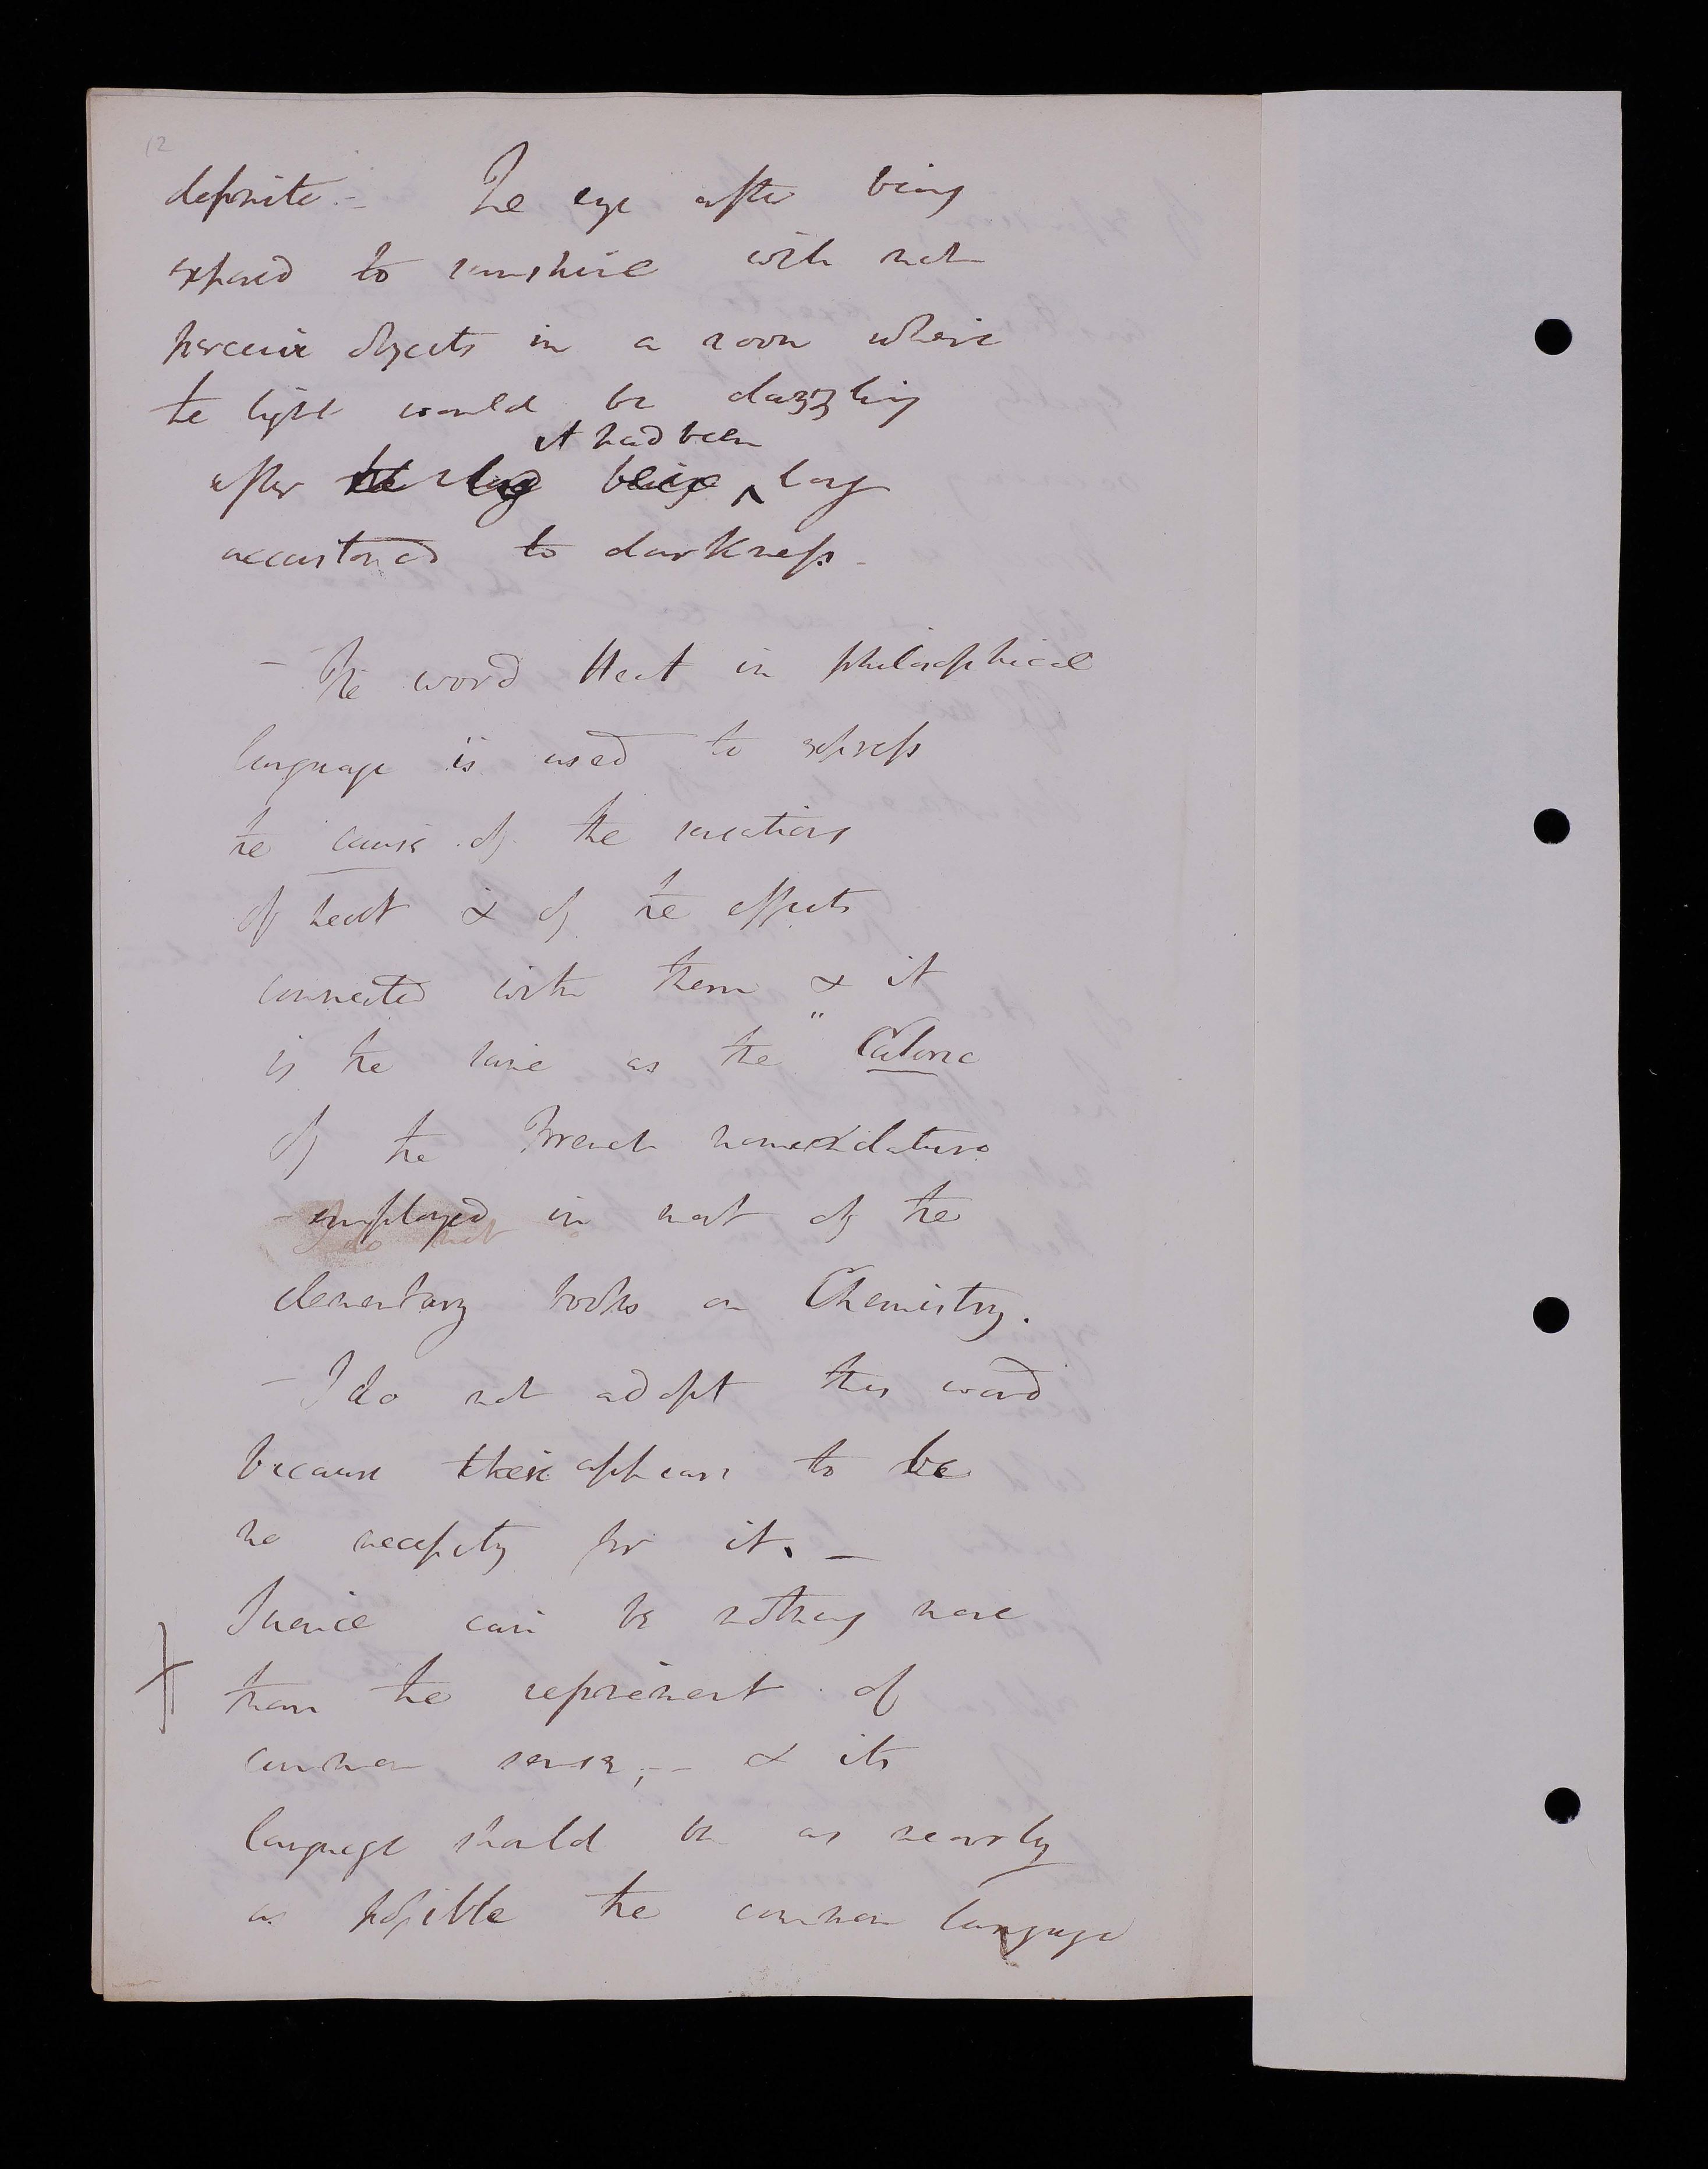 12
definite.- The eye after being
exposed to sunshine will not
perceive objects in a room where
the light would be dazzling
it had been
after being long
accustomed to darkness.
- The word Heat in philosophical
language is used to express
the cause of the sensations
of heat & of the effects
connected with them & it
is the same as the "Caloric
of the French nomenclature
- employed in most of the
elementary books on Chemistry.
- I do not adopt this word
because there appears to be
no necessity for it. -
Science can be nothing more
than the refinement of
common sense, - & its
language should be as nearly
as possible the common language